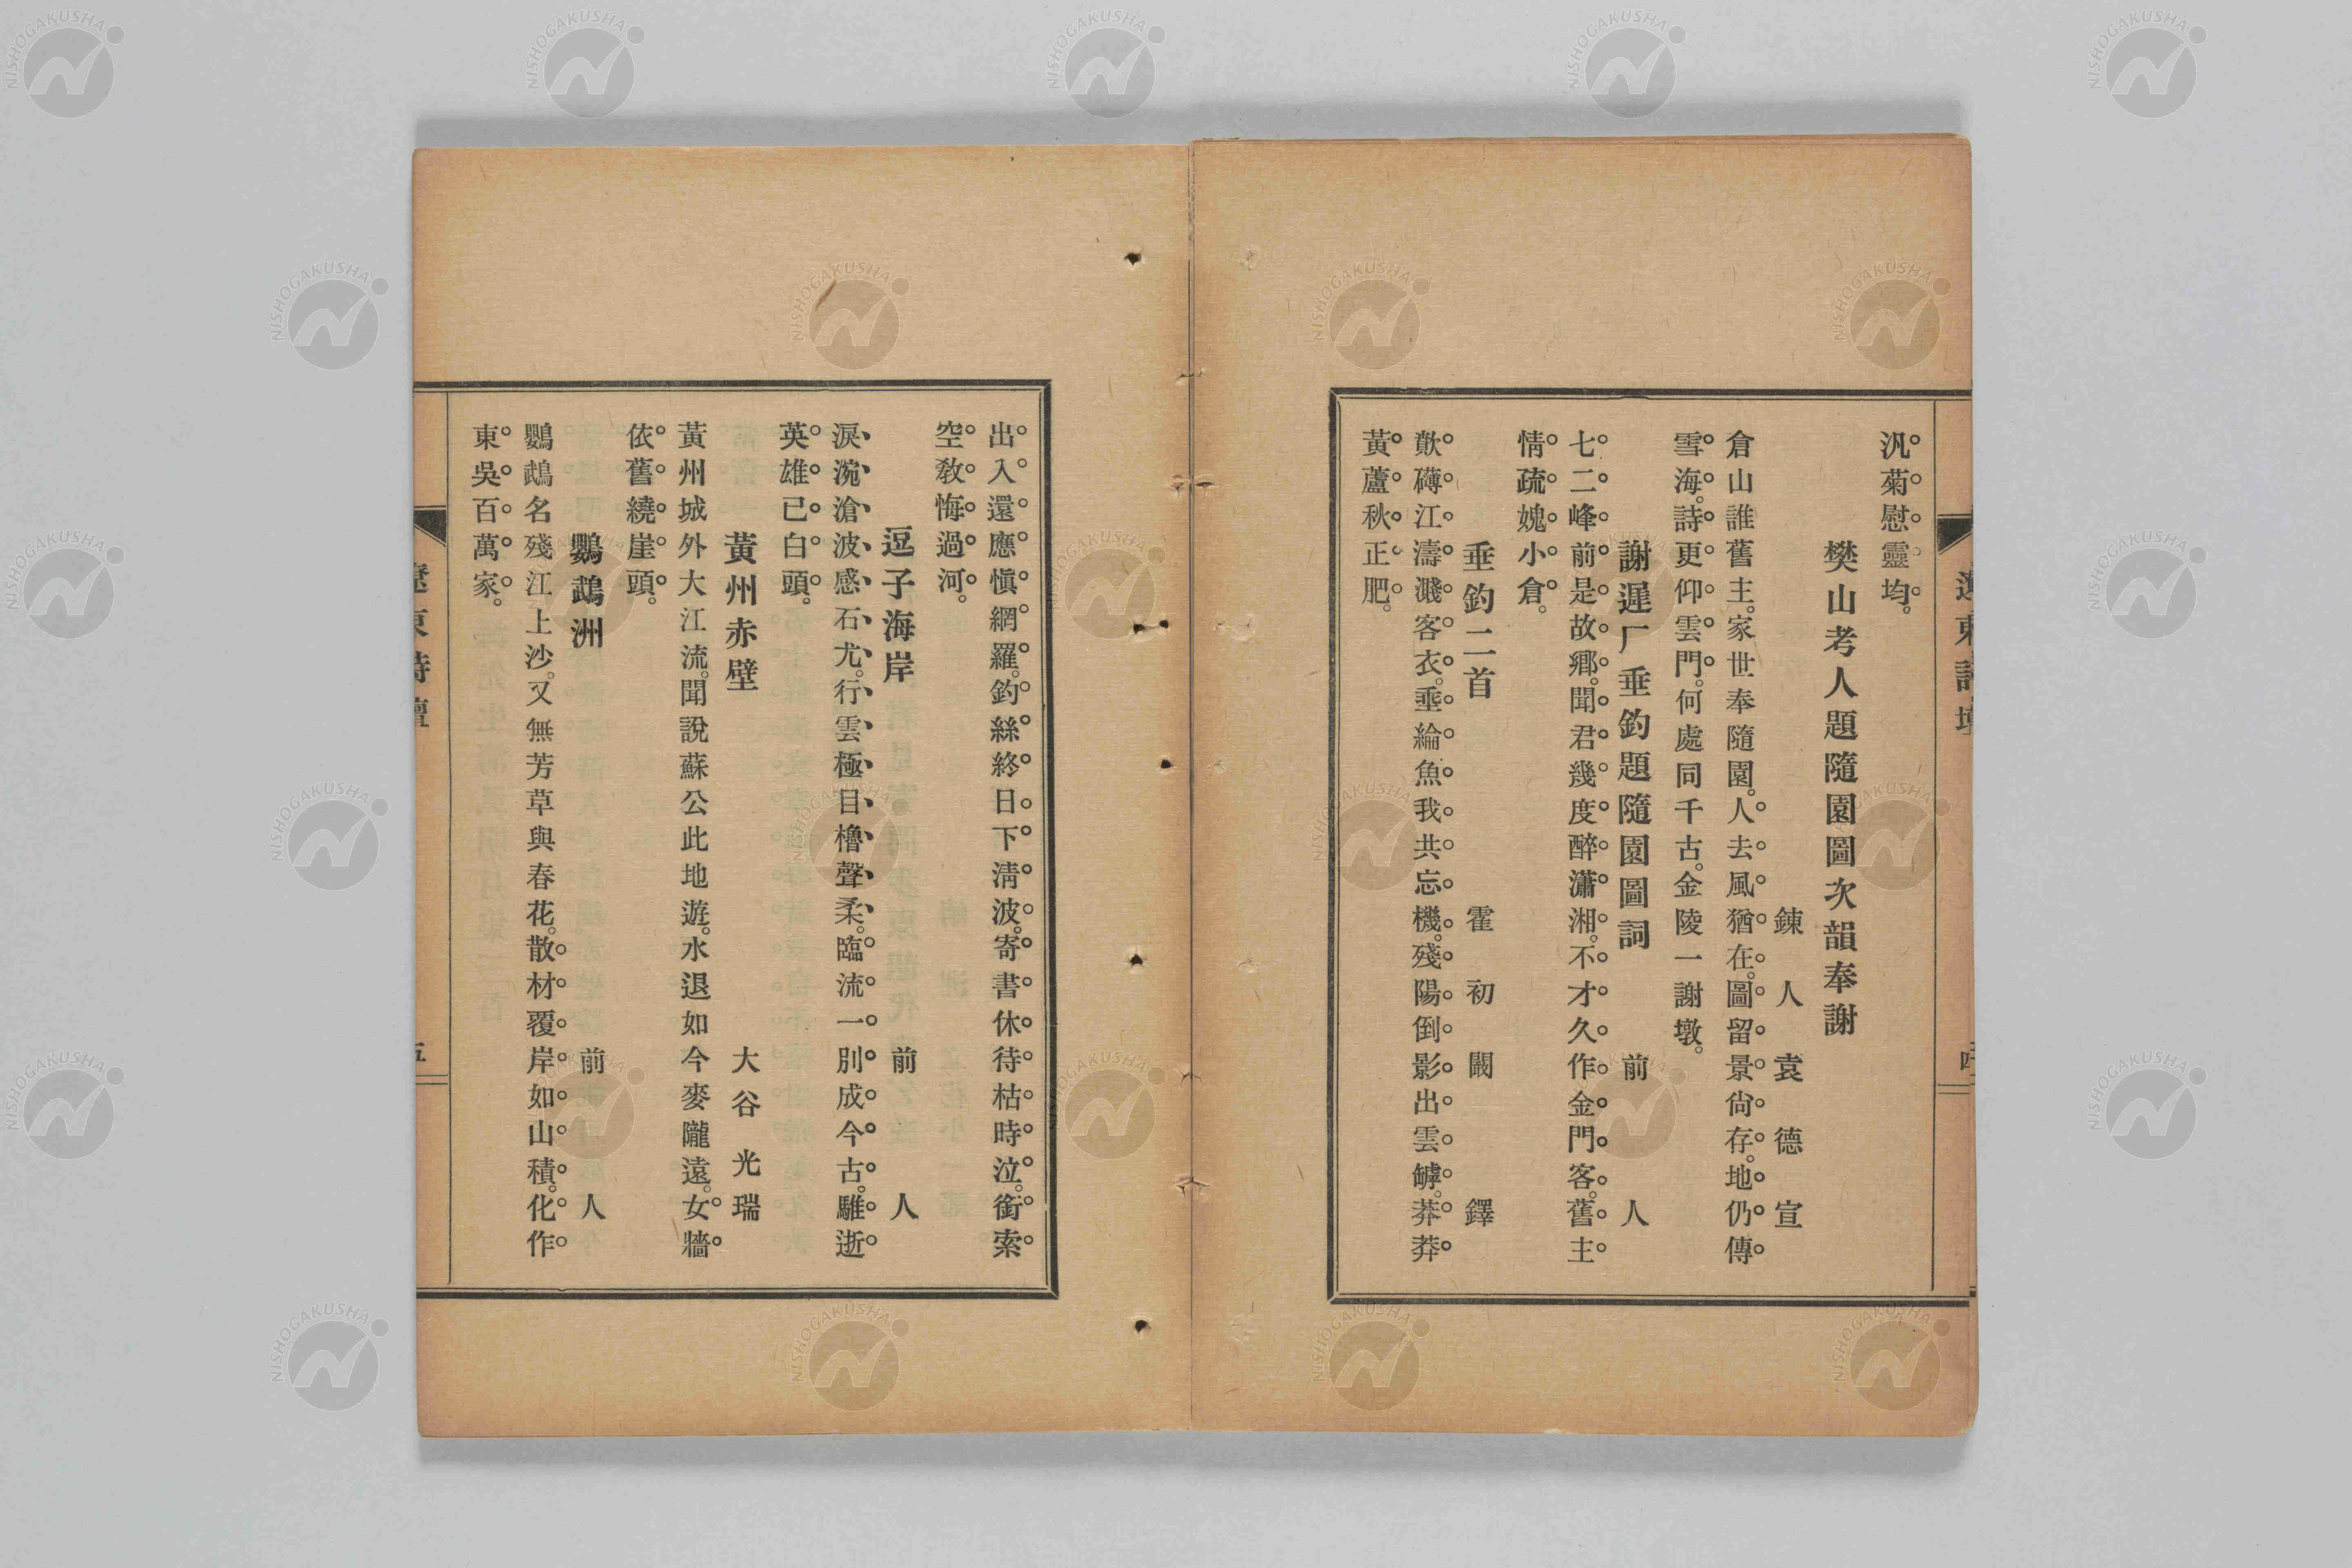 遼東詩壇
四
汎菊慰靈均。
樊山考人題隨園圖次韻奉謝
錬人袁德宣
倉山誰舊主。家世奉隨園。人去風猶在。圖留景尙存。地仍傳
雪海。詩更仰雲門。何處同千古。金陵一謝墩。
謝遲厂垂釣題隨園圖詞 前人
七二峰前是故鄉。聞君幾度醉瀟湘。不才久作金門客。舊主
情疏媿小倉。
垂釣二首 霍初闞鐸
歕礴江濤濺客衣。垂綸魚我共忘機。殘陽倒影出雲罅。莽莽
黃蘆秋正肥。
出入還應愼網羅。釣絲終日下淸波。寄書休待枯時泣。銜索
空敎悔過河。
逗子海岸 前人
淚涴滄波感石尤。行雲極目櫓聲柔。臨流一別成今古。騅逝
英雄已白頭。
黃州赤壁 大谷光瑞
黃州城外大江流。聞說蘇公此地遊。水退如今麥隴遠。女牆
依舊繞崖頭。
鸚鵡洲 前人
鸚鵡名殘江上沙。又無芳草與春花。散材覆岸如山積。化作
東吳百萬家。
遼東詩壇
五
NISHOGAKUSHA